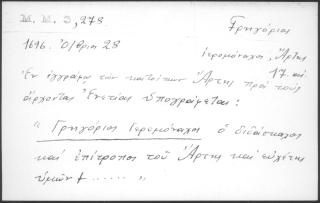 Μ. Μ. 3, 278
Γρηγόριος
1696. Ὀ/βρίου 28
ἱερομόναχος, Ἄρτης
17. αἰ.
Ἐν ἐγγράφῳ τῶν κατοίκων Ἄρτης πρὸς τοὺς
ἄρχοντας Ἑνετίας ὑπογράφεται:
" Γρηγόριος Ἱερομόναχος ὁ διδάσκαλος
καὶ ἐπίτροπος τοῦ Ἄρτης καὶ εὐχέτης
ὑμῶν + ...... "